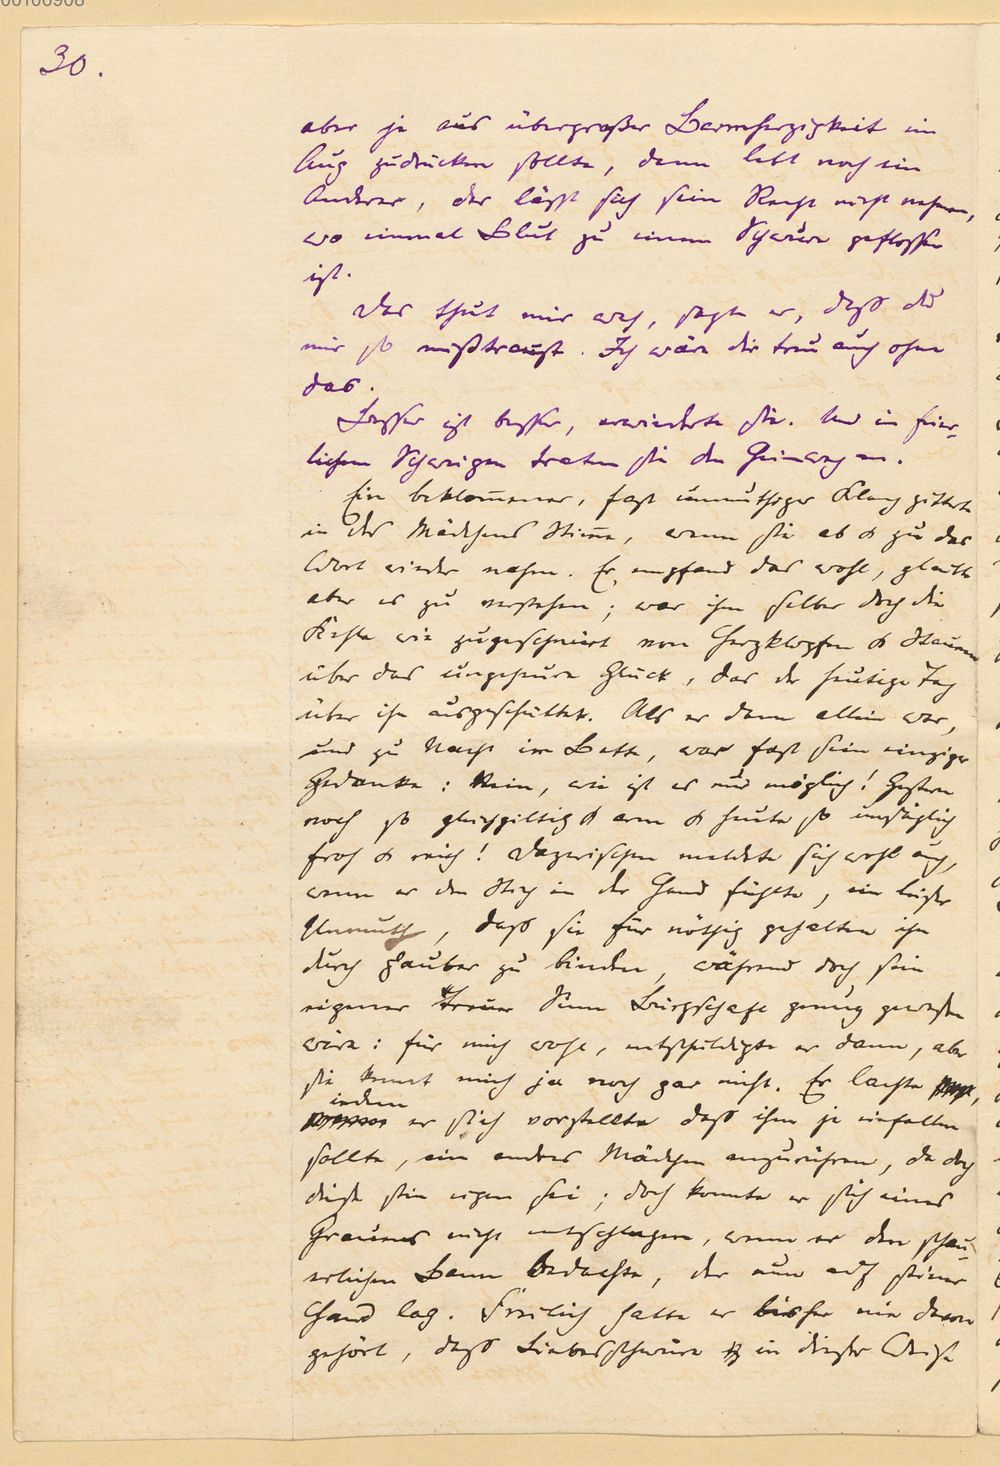 00106908
30.
aber je aus übergroßer Barmherzigkeit ein
Aug zudrücken sollte, dann lebt noch ein
Anderer, der läßt sich sein Recht nicht nehmen,
wo einmal Blut zu einem Schwure geflossen
ist.
Das thut mir weh, sagte er, daß du
mir so mißtraust. Ich wäre dir treu auch ohne
das.
Besser ist besser, erwiederte sie. Und in feier-
lichem Schweigen traten sie den Heimweg an.
Ein beklom̄ener, fast unmuthiger Klang zitterte
in des Mädchens Stim̄e, wenn sie ab & zu das
Wort wieder nahm. Er empfand das wohl, glaubte
aber es zu verstehen; war ihm selber doch die
Kehle wie zugeschnürt von Herzklopfen & Staunen
über das ungeheure Glück, das der heutige Tag
über ihn ausgeschüttet. Als er dann allein war,
und zu Nacht im Bette, war fast sein einziger
Gedanke: Nein, wie ist es nur möglich! Gestern
noch so gleichgiltig & arm & heute so unsäglich
froh & reich! Dazwischen meldete sich wohl auch,
wenn er den Stich in der Hand fühlte, ein leiser
Unmuth, daß sie für nöthig gehalten ihn
durch Zauber zu binden, während doch sein
eigener treuer Sinn Bürgschaft genug gewesen
wäre: für mich wohl, entschuldigte er dann, aber
sie kennt mich ja noch gar nicht. Er lachte,
indem
er sich vorstellte daß ihm je einfallen
sollte, ein andres Mädchen anzurühren, da doch
diese sein eigen sei; doch konnte er sich eines
Grauens nicht entschlagen, wenn er den schau-
erlichen Bann bedachte, der nun auf seiner
Hand lag. Freilich hatte er bisher nie davon
gehört, daß Liebesschwüre in dieser Weise